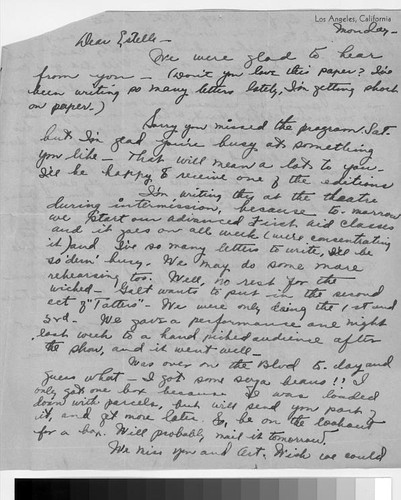 Los Angeles, California
Monday -
Dear Estelle -
We were glad to hear
from you - (Don't you love this paper? I've
been writing so many letters lately, I'm getting short
on paper.)
Sorry you missed the program, Sat.
but I'm glad you're busy at something
you like - That will mean a lot to you.
I'll be happy to receive one of the editions
I'm writing this at the theatre
during intermission, because to-morrow
we start our advanced First Aid classes
and it goes on all week (we're concentrating
it) and I've so many letters to write, I'll be
so darn' busy. We may do some more
rehearsing too. Well, no rest for the
wicked - Galt wants to put in the second
act of "Tatters" - We were only doing the 1st and
3rd. - We gave a performance one night
last week to a hand picked audience after
the show, and it went well -
Was over on the Blvd to-day and
guess what - I got some soya beans!! I
only got one box because I was loaded
down with parcels, but will send you part of
it, and get more later. So, be on the lookout
for a box. Will probably mail it tomorrow.
We miss you and Art. Wish we could